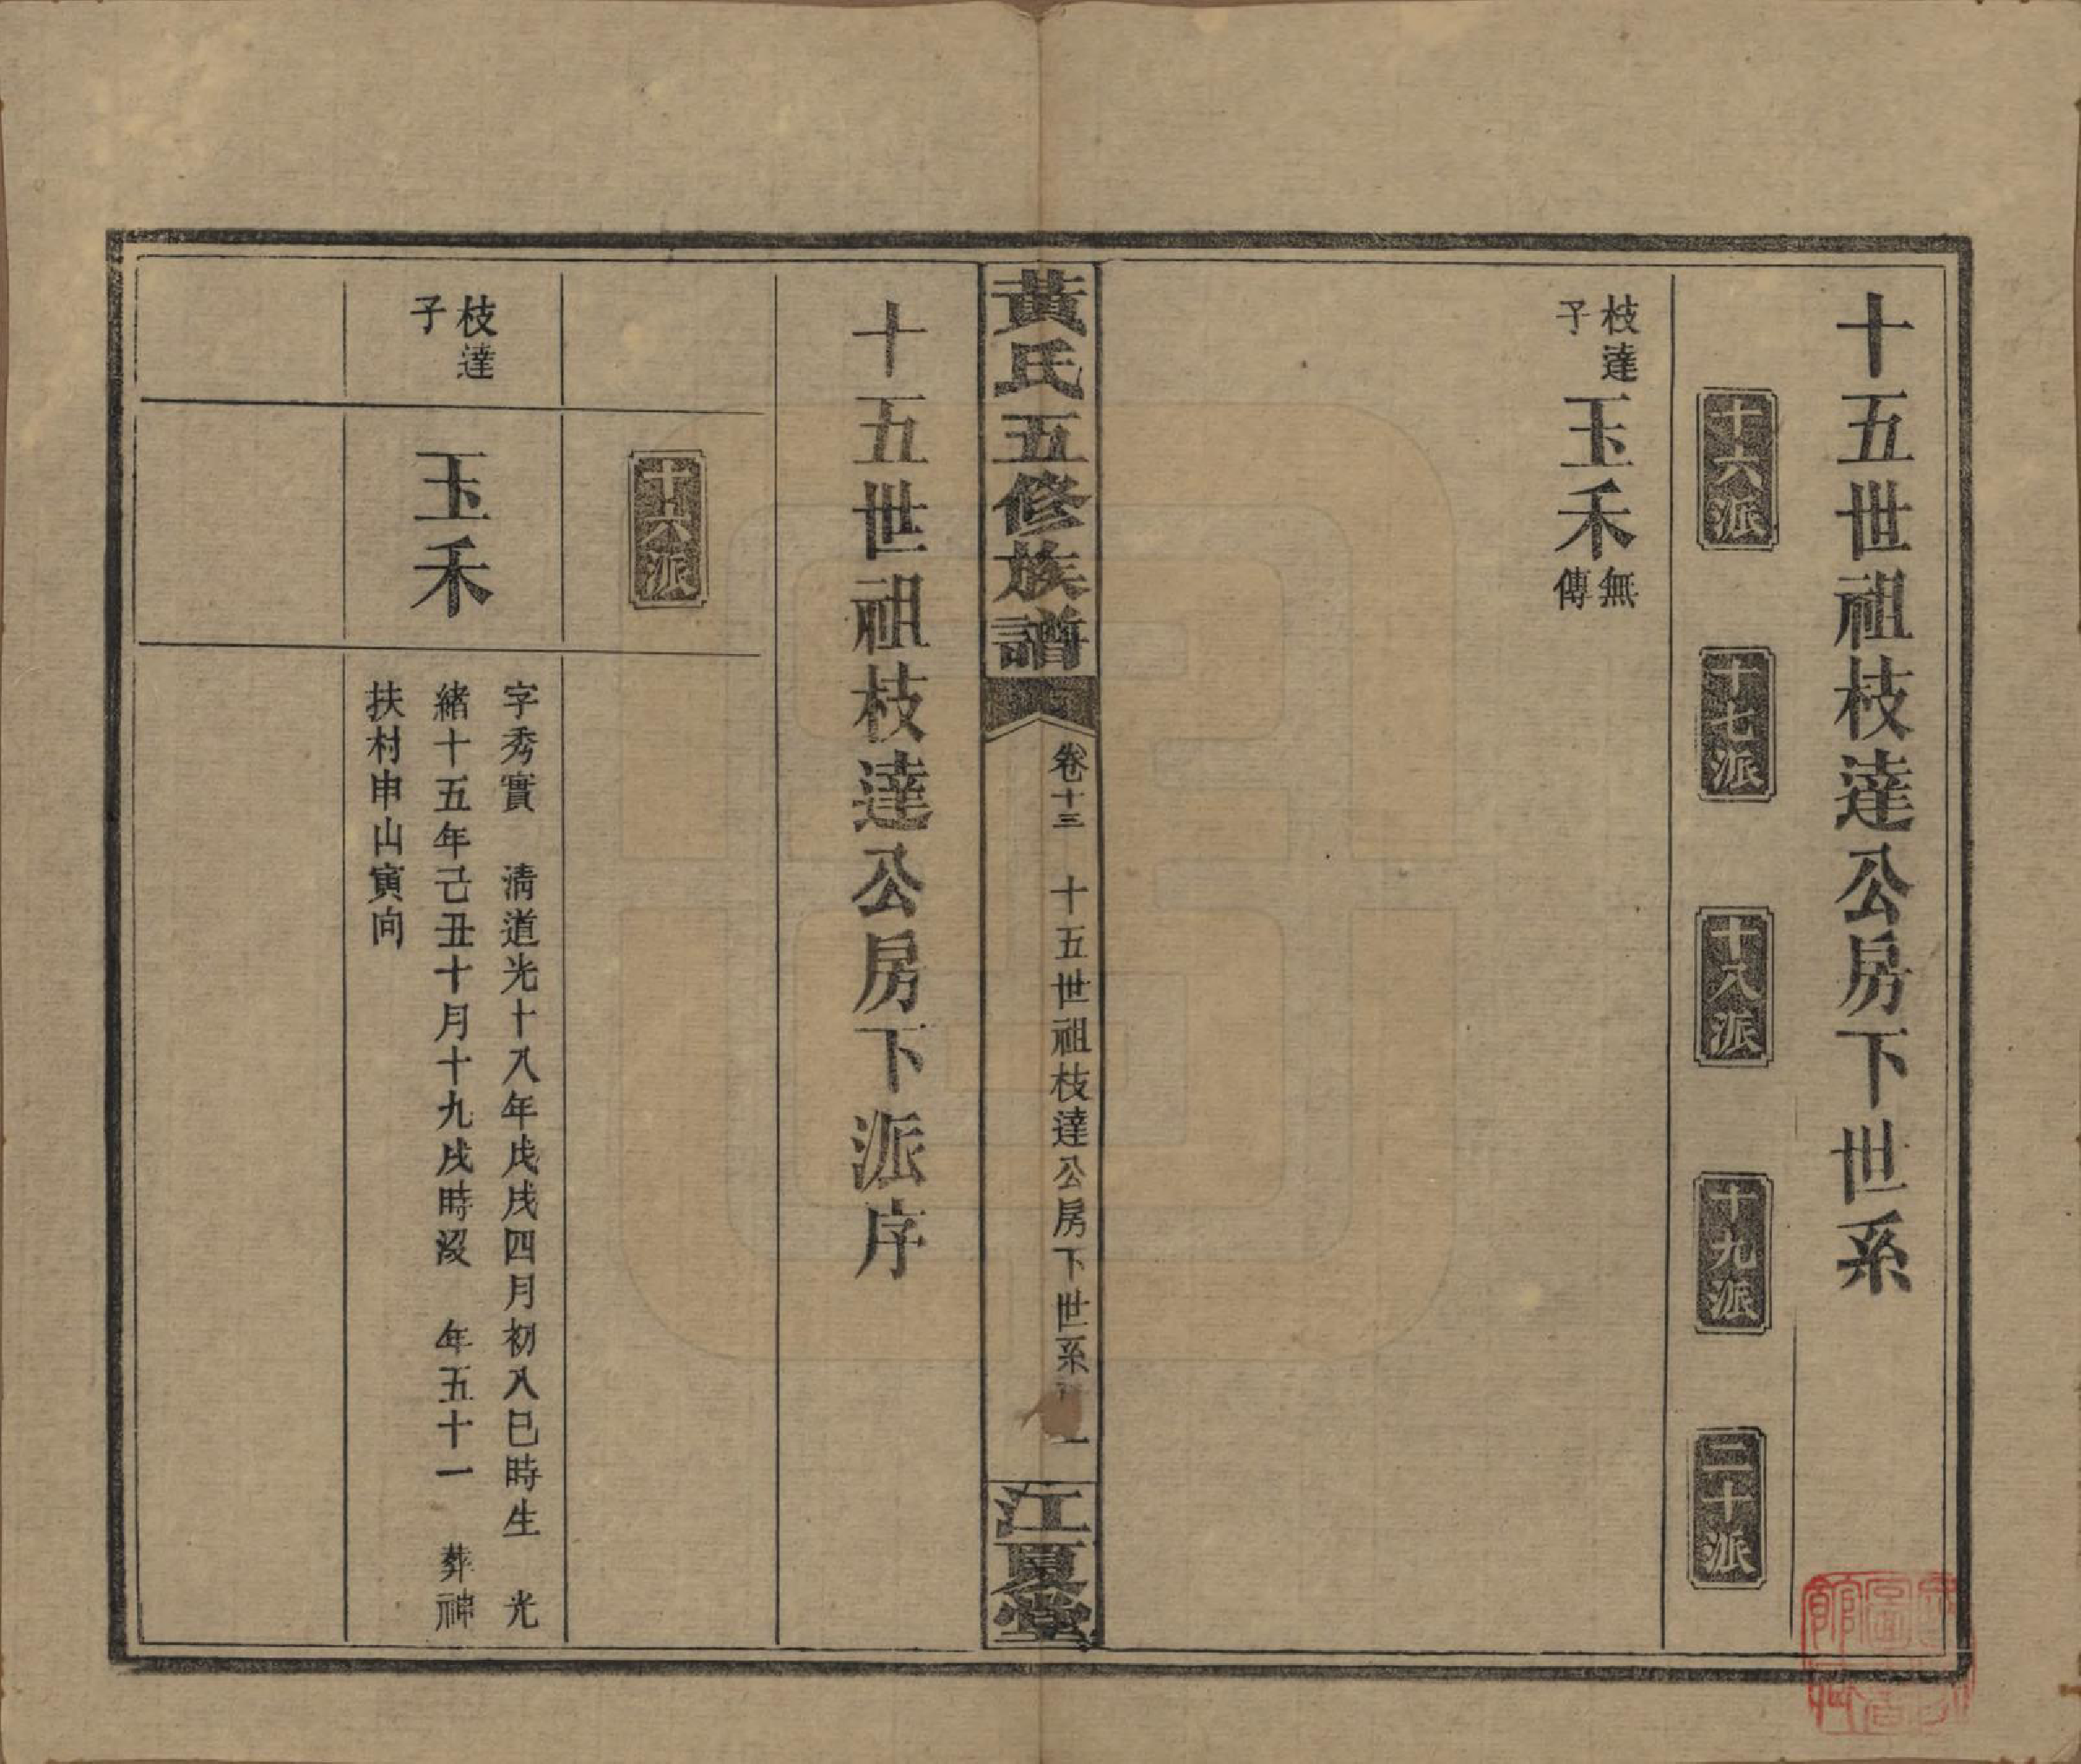 十五世祖枝達公房下世系
十六派
十七派
十八派
十九派
二十派
枝達
子
玉禾
無
傳
黃氏五修族譜
卷十三
十五世祖枝達公房下世系
一
江夏堂
十五世祖枝達公房下派序
十六派
枝達
子
玉禾
字秀實 清道光十八年戊戌四月初八巳時生 光
緒十五年己丑十月十九戌時沒 年五十一 葬神
扶村申山寅向